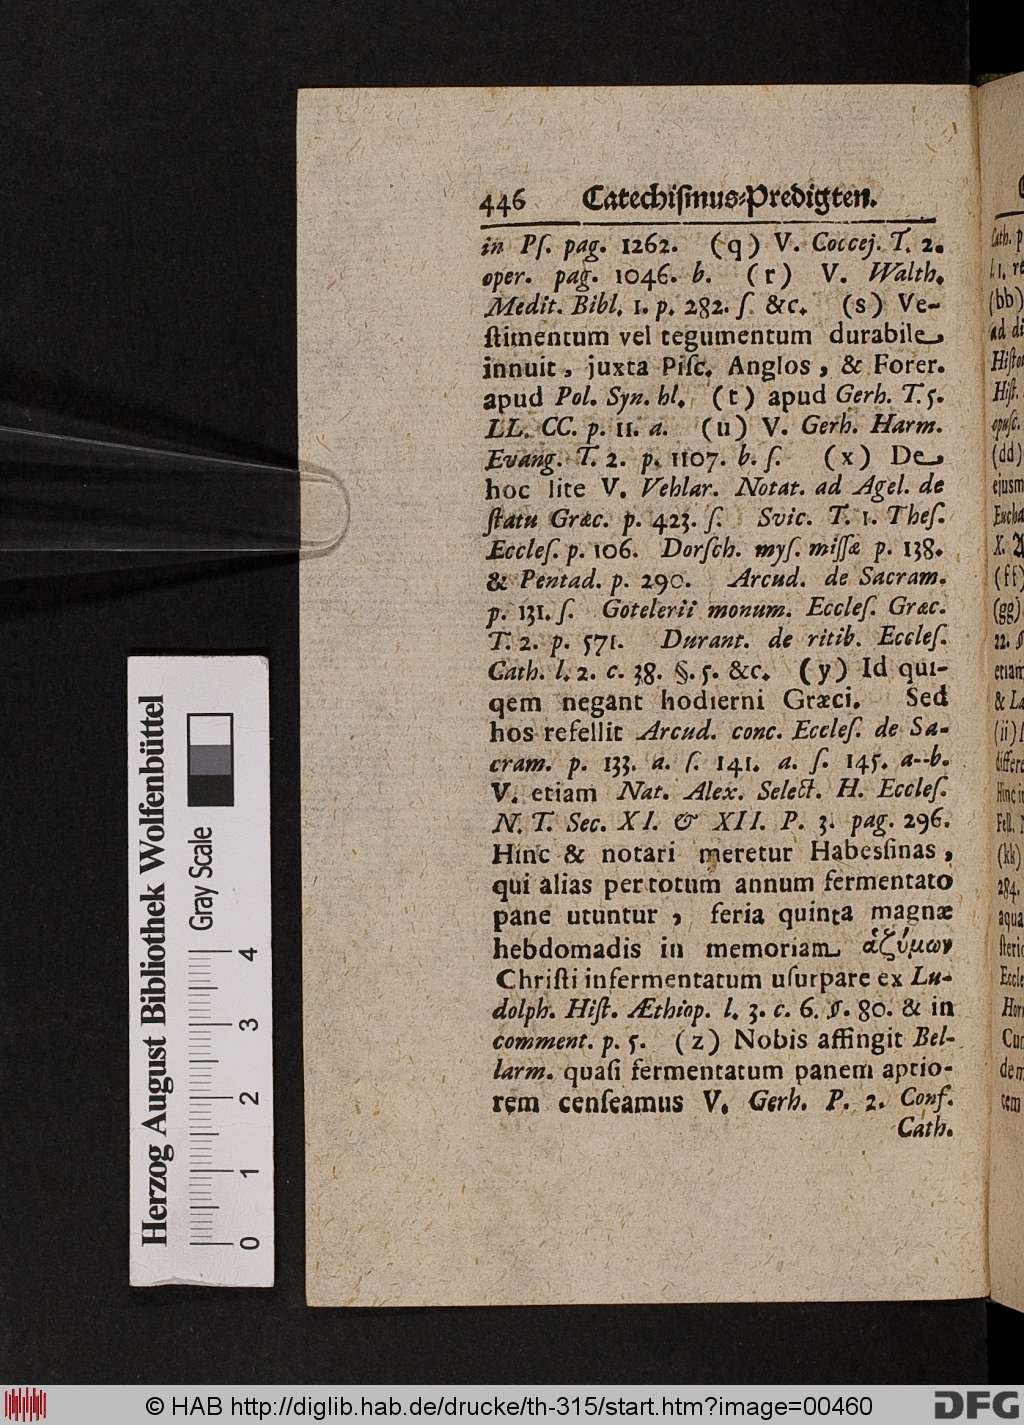 446 Catechiſmus-Predigten.
in Pſ. pag. 1262. (q) V. Coccej. T. 2.
oper. pag. 1046. b. (r) V. Walth.
Medit. Bibl. 1. p. 282. ſ. &c. (s) Ve-
ſtimentum vel tegumentum durabile
innuit, juxta Piſc. Anglos, & Forer.
apud Pol. Syn. hl. (t) apud Gerh. T. 5.
LL. CC. p. 11. a. (u) V. Gerh. Harm.
Evang. T. 2. p. 1107. b. ſ. (x) De
hoc lite V. Vehlar. Notat. ad Agel. de
ſtatu Græc. p. 423. ſ. Svic. T. 1. Theſ.
Eccleſ. p. 106. Dorſch. myſ. miſſæ p. 138.
& Pentad. p. 290. Arcud. de Sacram.
p. 131. ſ. Gotelerii monum. Eccleſ. Græc.
T. 2. p. 571. Durant. de ritib. Eccleſ.
Cath. l. 2. c. 38. §. 5. &c. (y) Id qui-
qem negant hodierni Græci. Sed
hos refellit Arcud. conc. Eccleſ. de Sa-
cram. p. 133. a. ſ. 141. a. ſ. 145. a--b.
V. etiam Nat. Alex. Select. H. Eccleſ.
N. T. Sec. XI. & XII. P. 3. pag. 296.
Hinc & notari meretur Habesſinas,
qui alias per totum annum fermentato
pane utuntur, feria quinta magnæ
hebdomadis in memoriam ἀζύμων
Chriſti infermentatum uſurpare ex Lu-
dolph. Hiſt. Æthiop. l. 3. c. 6. §. 80. & in
comment. p. 5. (z) Nobis affingit Bel-
larm. quaſi fermentatum panem aptio-
rem cenſeamus V. Gerh. P. 2. Conf.
Cath.
Cath. p
l. 1. re
(bb)
ad di
Hiſto
Hiſt.
opuſc.
(dd)
ejusm
Eucha
X. A
(ff)
(gg)
22.
etiam
& La
(ii)
differe
Hinc i
Feſt.
(kk)
284.
aqua
ſterio
Eccle
Hor
Cur
dem
cem
Herzog August Bibliothek Wolfenbüttel
Gray Scale
0 1 2 3 4
© HAB http://diglib.hab.de/drucke/th-315/start.htm?image=00460
DFG